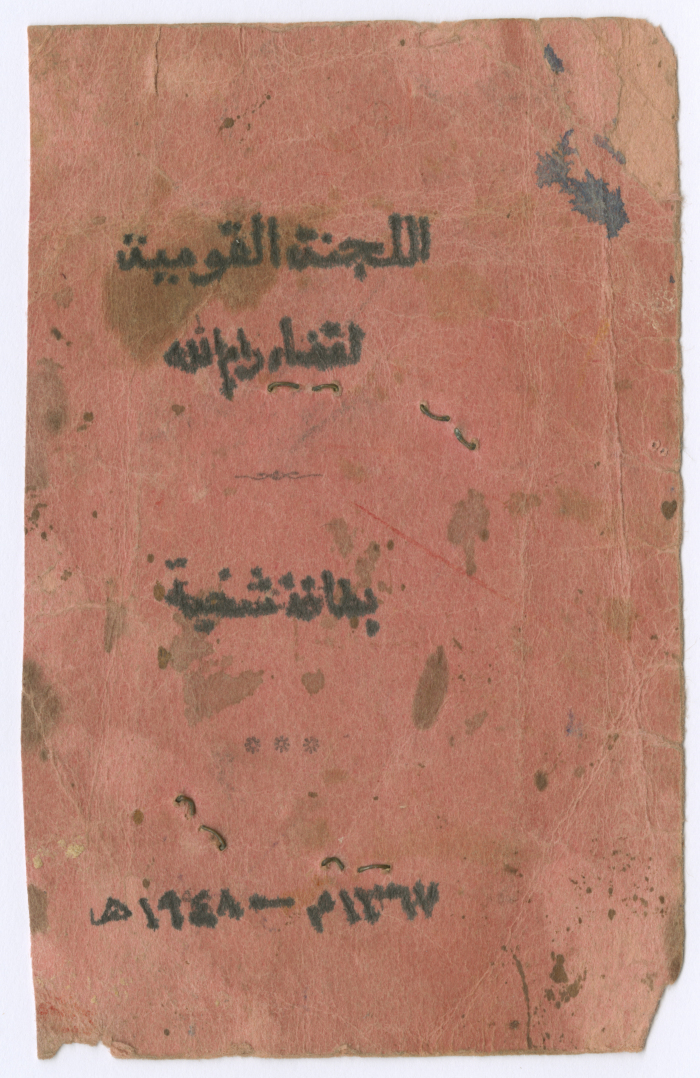 اللجنة القومية
لقضاء رام الله
بطاقة شخصية
١٣٦٧م — ١٩٤٨هـ